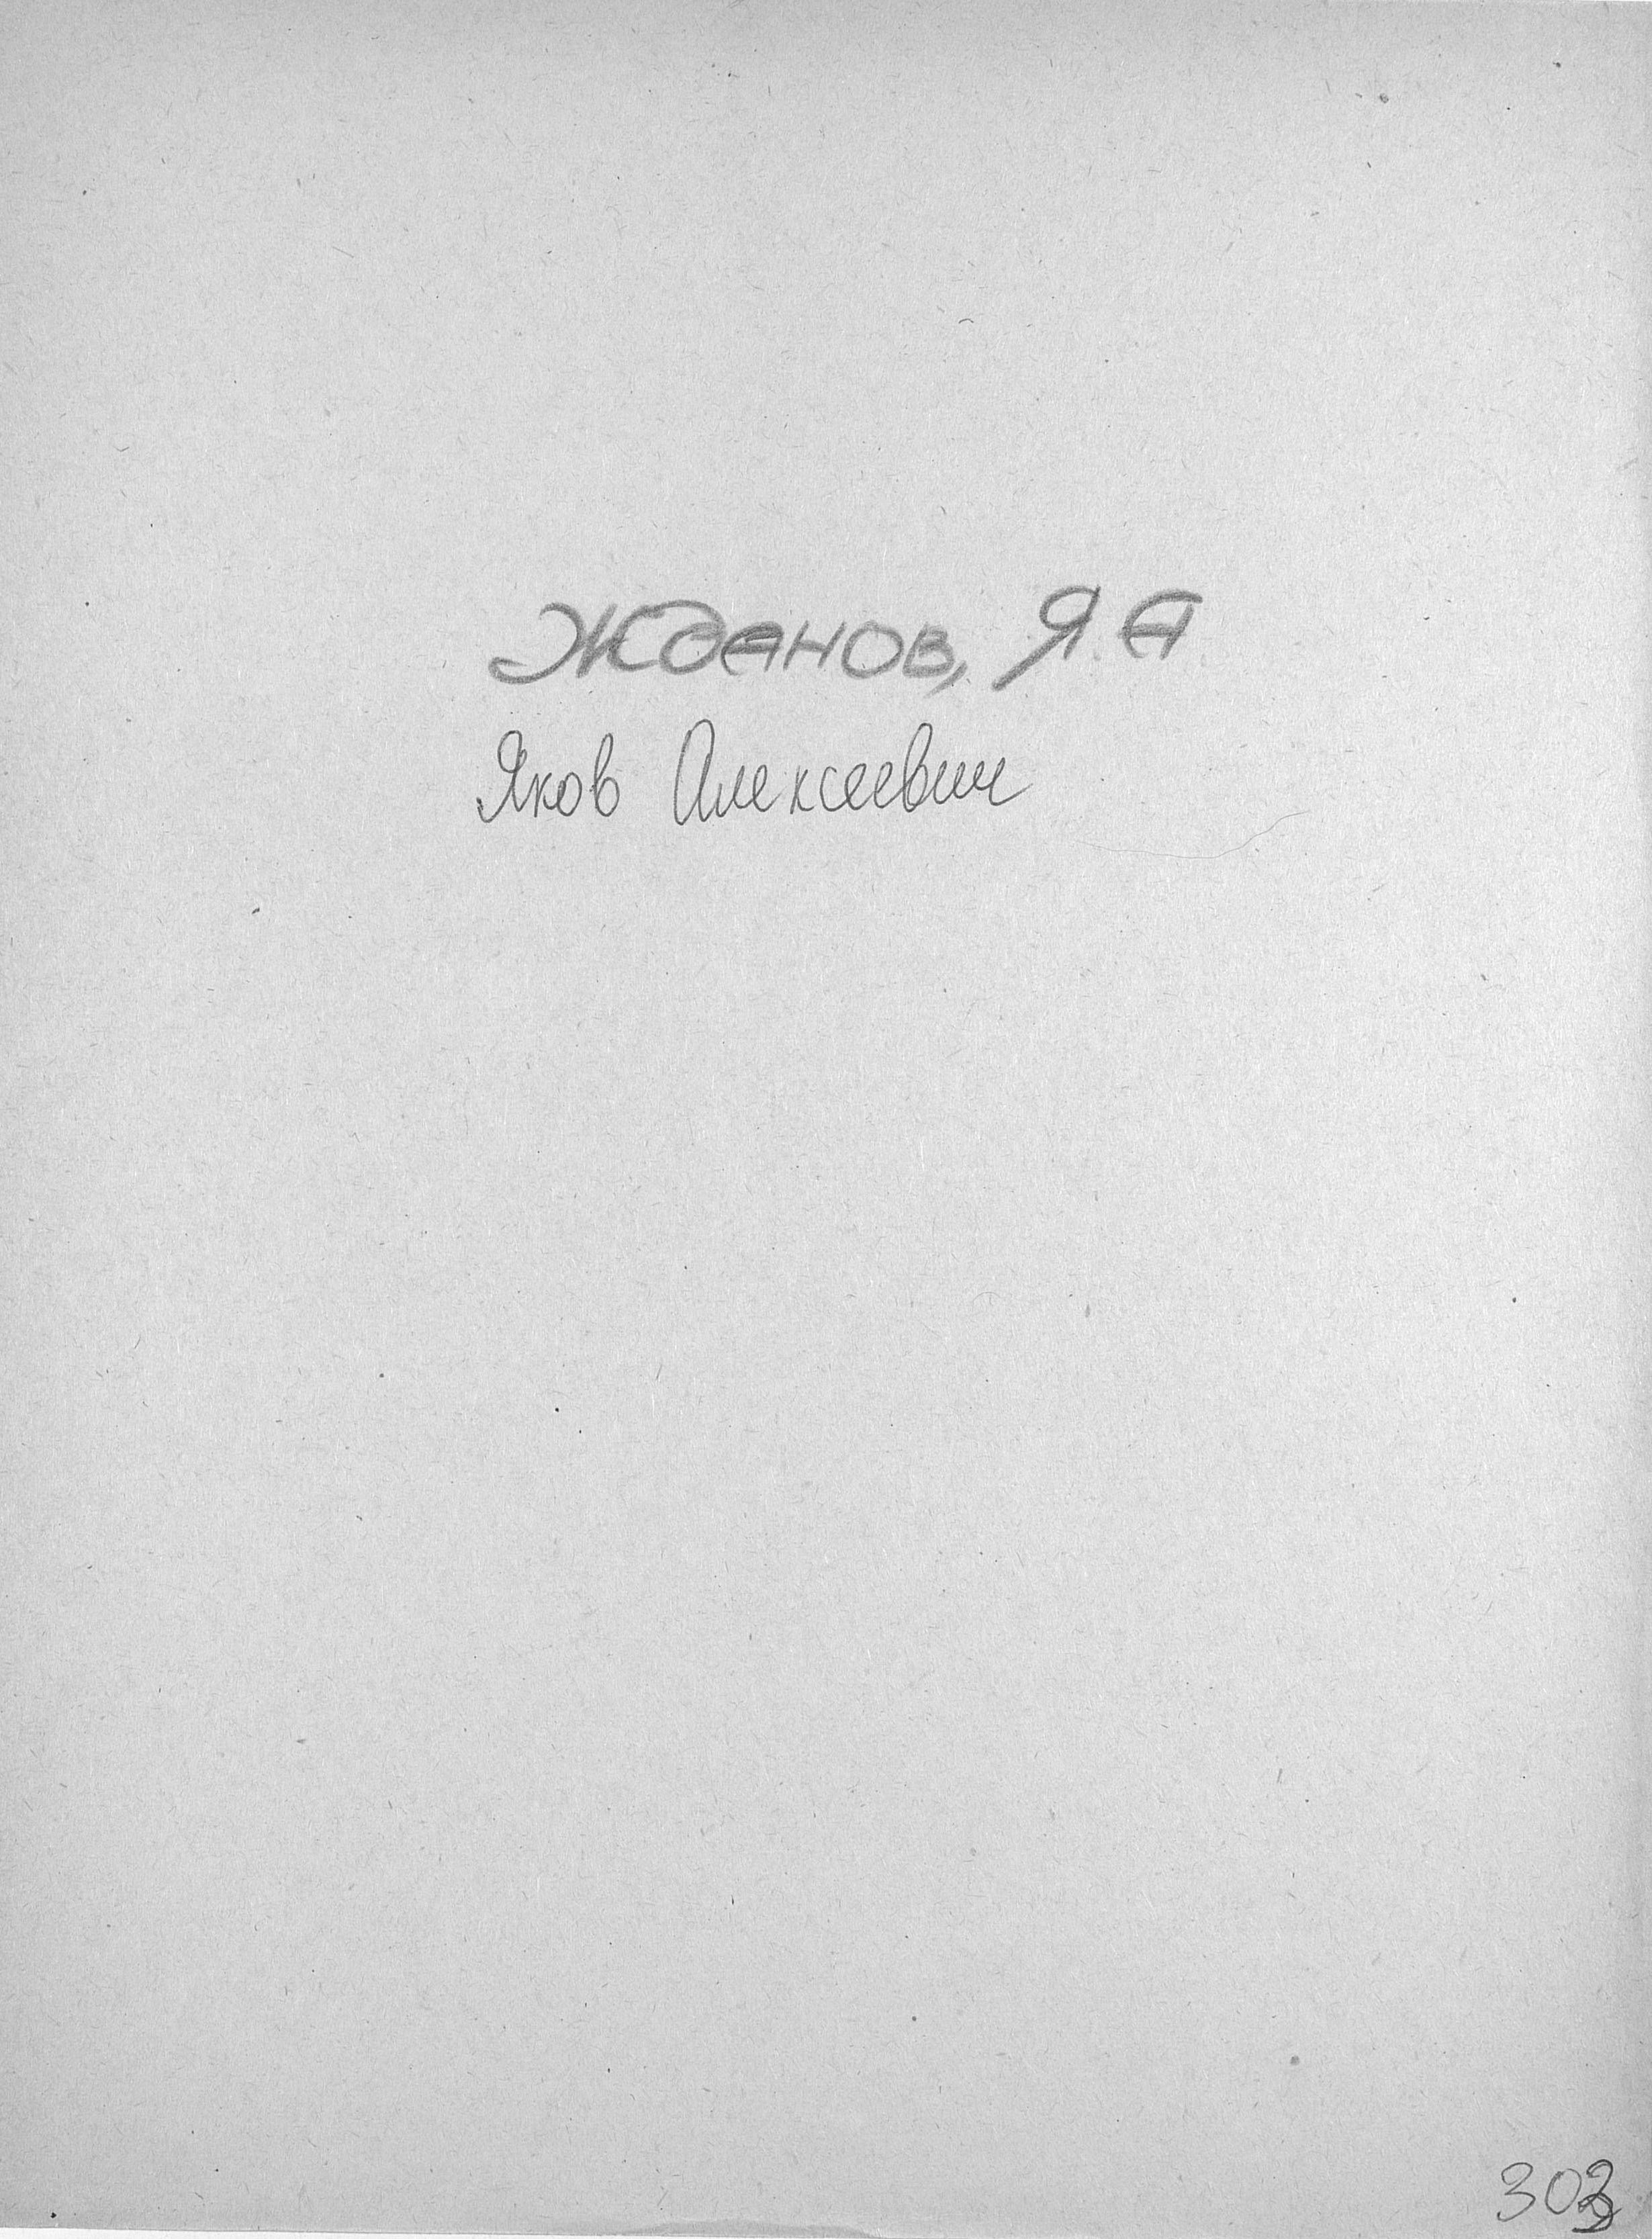 Жданов, Я. А.
Яков Алексеевич
303